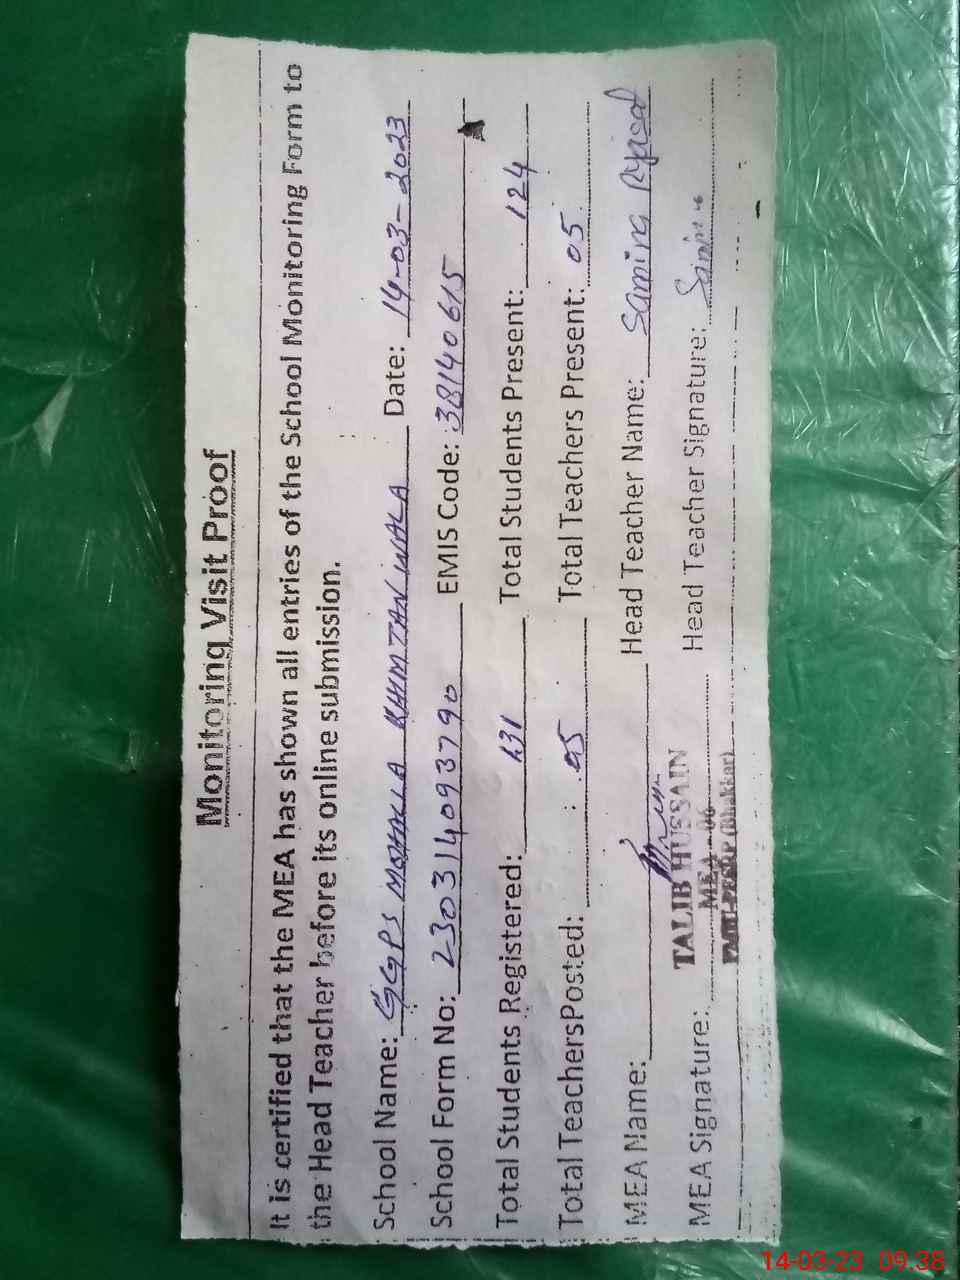 Monitoring Visit Proof
It is certified that the MEA has shown all entries of the School Monitoring Form to
the Head Teacher before its online submission.
School Name: GGPS MOHALLA KHMTANWALA Date: 14-03-2023
School Form No: 230314093790 EMIS Code: 38140615
Total Students Registered: 131 Total Students Present: 124
Total TeachersPosted: 05 Total Teachers Present: 05
MEA Name: Head Teacher Name: Samina
TALIB HUSSAIN
MEA - 06
MEA Signature: Head Teacher Signature: Samina
(Bhakkar)
14-03-23 09.38